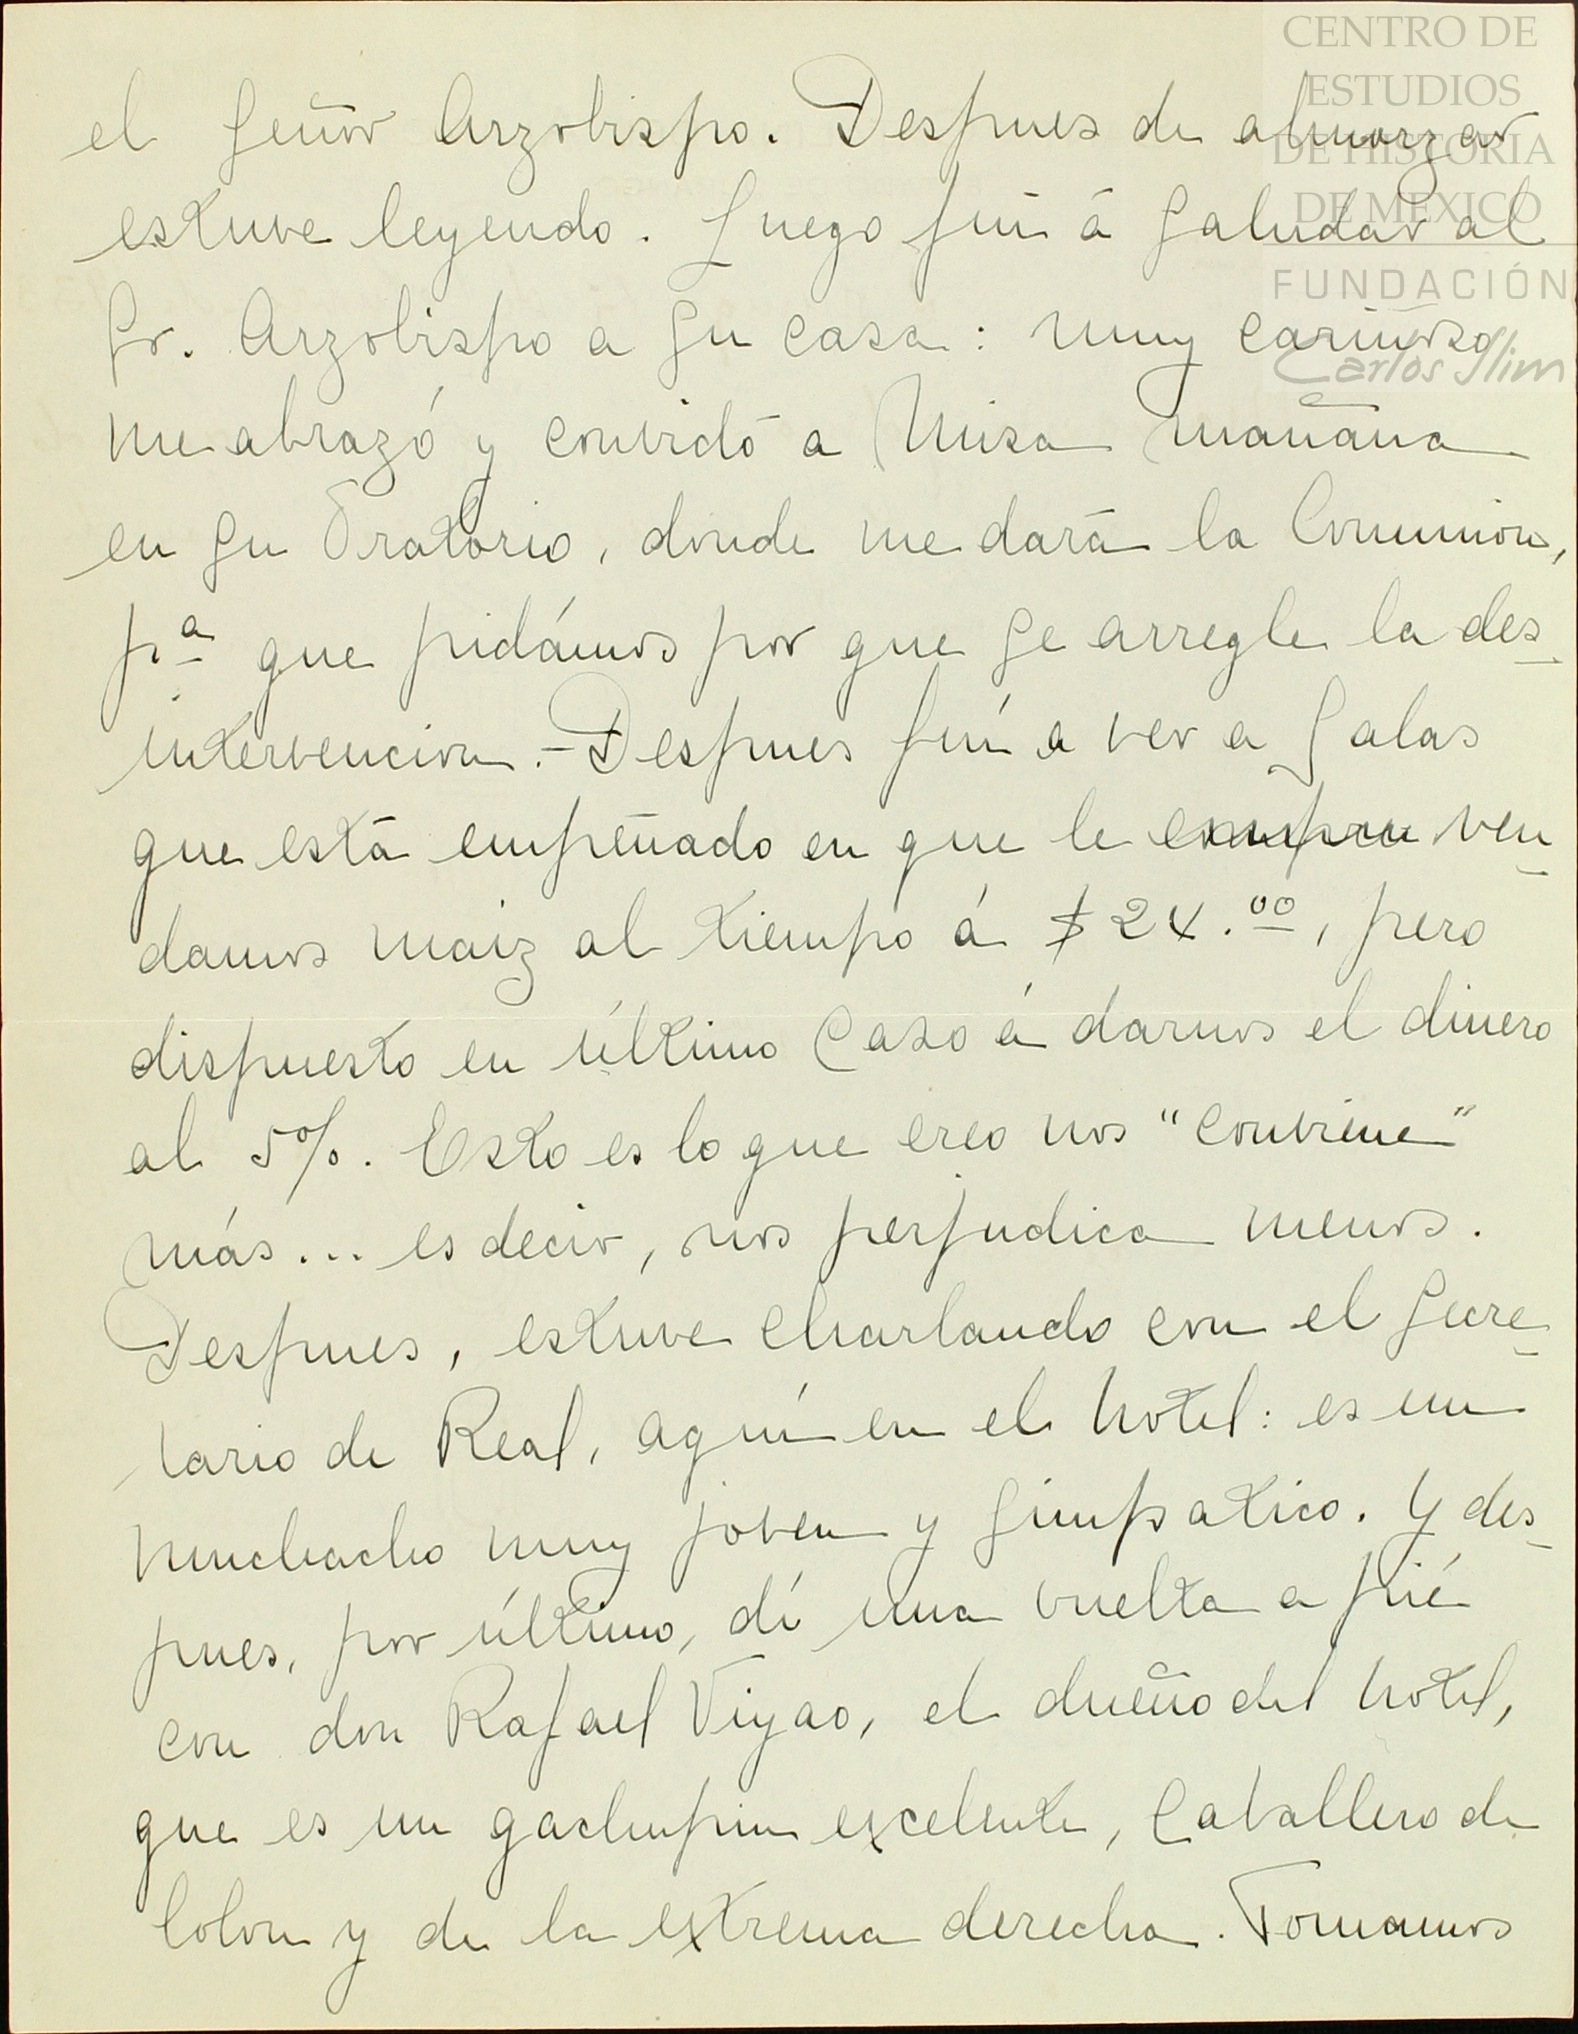 CENTRO DE
ESTUDIOS
DE HISTORIA
DE MEXICO
FUNDACIÓN
Carlos Slim
el Señor Arzobispo. Despues de almorzar
estuve leyendo. Luego fuí á Saludar al
Sr. Arzobispo a Su casa: muy cariñoso
me abrazó y convidó a Misa mañana
en Su Oratorio, donde me dará la Comunión,
pª que pidámos por que Se arregle la des-
intervencion.- Despues fuí a ver a Salas
que está empeñado en que le compre ven-
damos maiz al tiempo á $24.00, pero
dispuesto en último Caso á darnos el dinero
al 5%. Esto es lo que creo nos "conviene"
más... es decir, nos perjudica menos.
Despues, estuve charlando con el Secre-
tario de Real, aquí en el hotel: es un
muchacho muy joven y Simpatico. Y des-
pues, por último, dí una vuelta a pié
con don Rafael Viyao, el dueño del hotel,
que es un gachupin excelente, Caballero de
Colon y de la extrema derecha. Tomamos